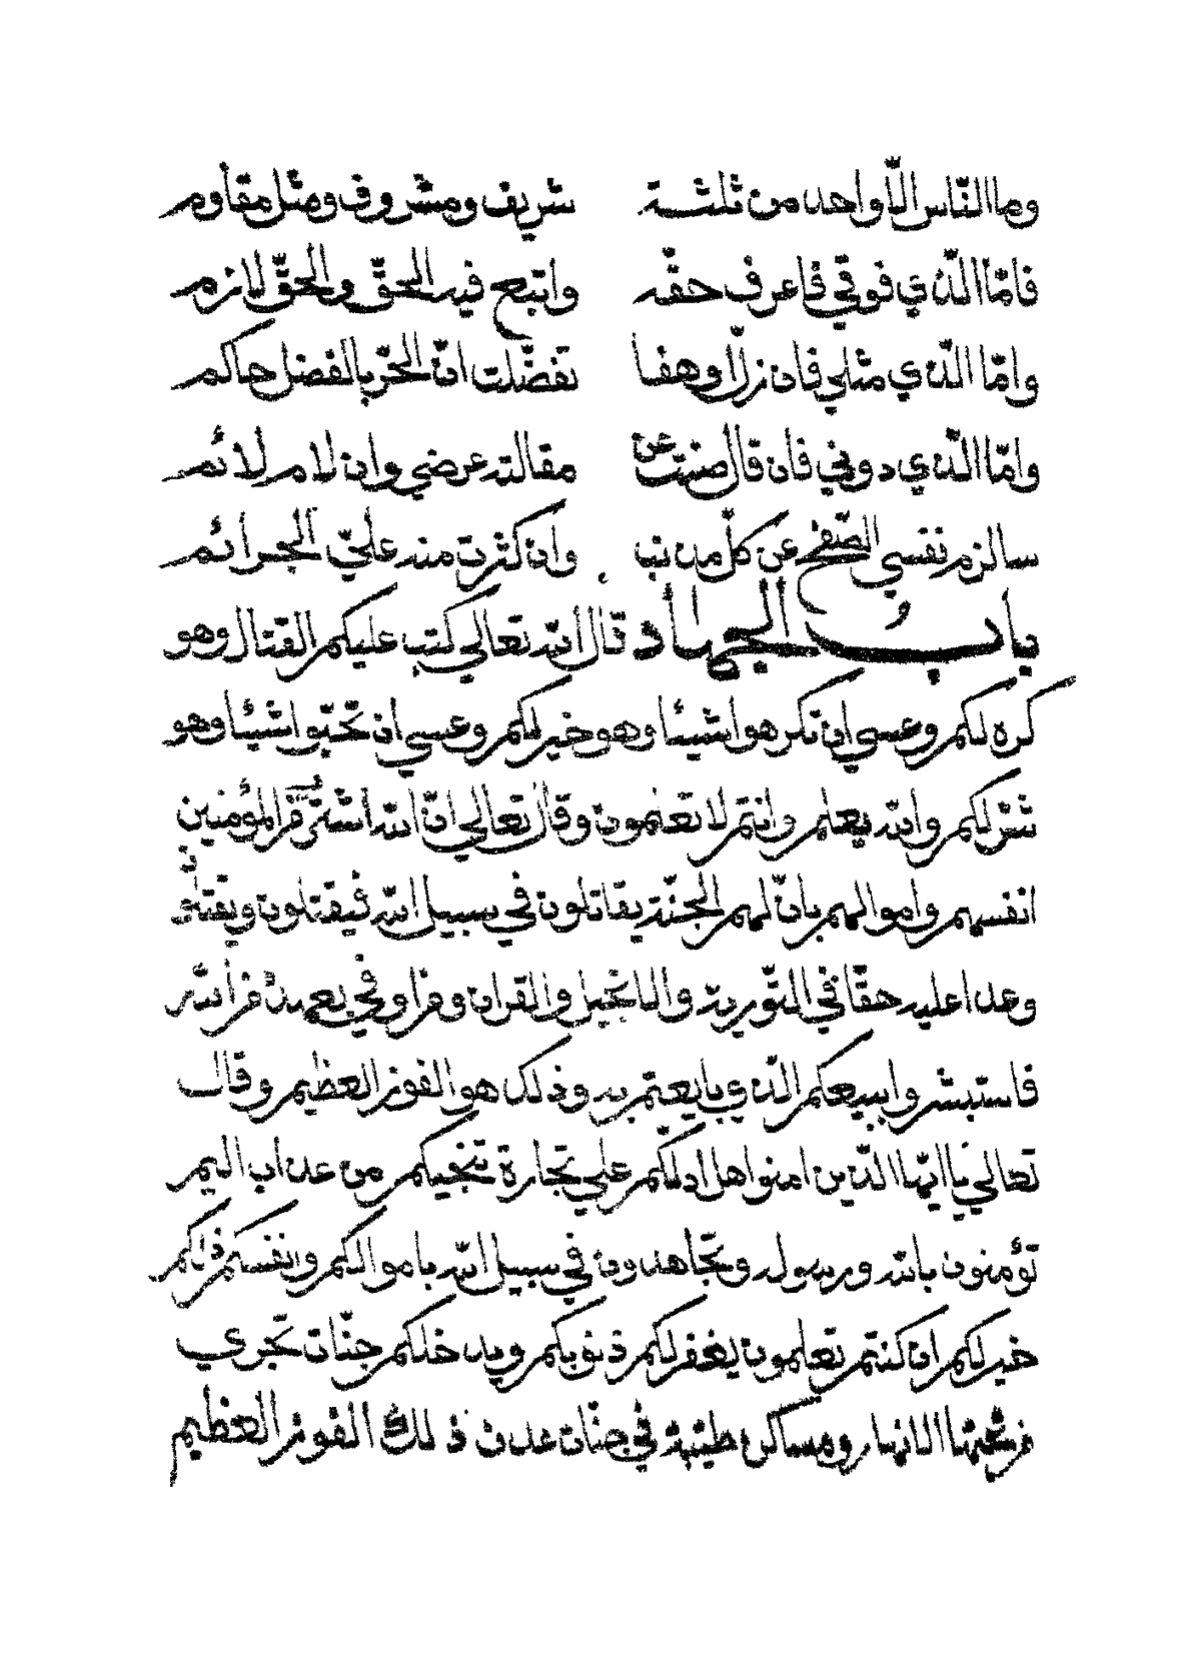 وما النّاس الّا واحد من ثلثة شريف ومشروف ومثل مقاوم
فامّا الّذي فوقي فاعرف حقّه واتبع فيه الحقّ والحقّ لازم
وامّا الذي مثلي فان زلّ او هفا تفضّلت انّ الحرّ بالفضل حاكم
وامّا الّذي دوني فان قال صنت عن مقالته عرضي وان لام لائم
سالزم نفسي الصّفح عن كلّ مذنب وان كثرت منه عليّ الجرائم
باب الجهاد قال الله تعالي كتب عليكم القتال وهو
كره لكم وعسي ان تكرهوا شيئا وهو خير لكم وعسي ان تحبّوا شيئا وهو
شرّ لكم والله يعلم وانتم لا تعلمون وقال تعالي انّ الله اشتري من المؤمنين
انفسهم واموالهم بانّ لهم الجنّة يقاتلون في سبيل الله فيقتلون ويقتلون
وعدا عليه حقّا في التّورية والانجيل والقران ومن اوفي بعهده من الله
فاستبشروا ببيعكم الّذي بايعتم به وذلك هو الفوز العظيم وقال
تعالي يا ايّها الّذين امنوا هل ادلّكم علي تجارة تنجيكم من عذاب اليم
تؤمنون بالله ورسوله وتجاهدون في سبيل الله باموالكم وانفسكم ذلكم
خير لكم ان كنتم تعلمون يغفر لكم ذنوبكم ويدخلكم جنّات تجري
من تحتها الانهار ومساكن طيّبة في جنّات عدن ذلك الفوز العظيم